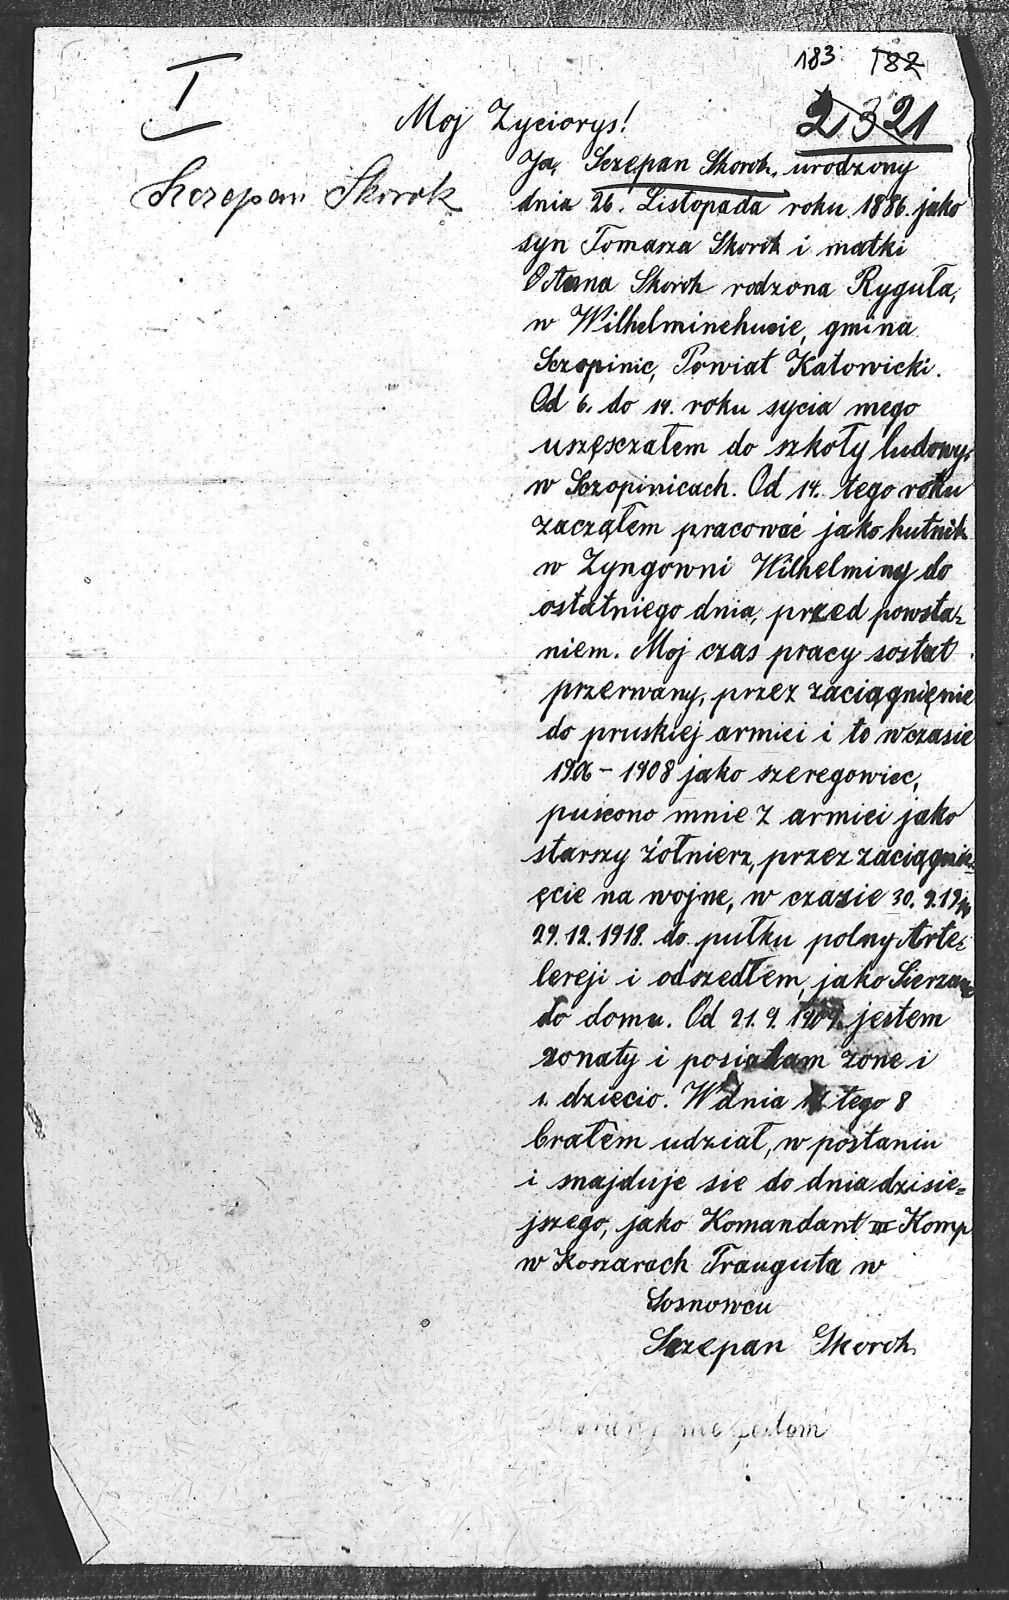 183. 182
I
2321
Moj Zyciorys!
Szczepan Skorok
Ja, Sczepan Skoroh, urodzony
dnia 26. Listopada roku 1886. jako
syn Tomasza Skoroh i matki
Skoroh rodzona Ryguła,
w Wilhelminehucie, gmina
Sczopinic, Powiat Katowicki.
Od 6. do 14. roku sycia mego
uszęsczałem do szkoły ludowy
w Sczopinicach. Od 14. tego roku
zacząłem pracować jako hutnik
w Zyngowni Wilhelminy do
ostatniego dnia, przed powsta-
niem. Moj czas pracy sostał
przerwany, przez zaciągnięnie
do pruskiej armiei i to wczasie
1906 - 1908 jako szeregowiec,
puscono mnie z armiei jako
starszy żołnierz, przez zaciągnie-
ęcie na wojne, w czasie 30. 9. 19
29. 12. 1918. do pułku polny Arte-
lereji i odszedłem, jako
do domu. Od 21. 9. 1909. jestem
zonaty i posiadam zone i
1. dziecio. W dnia tego 8
brałem udział, w postaniu
i snajduje sie do dnia dzisie-
jszego, jako Komandant III Komp
w Koszarach Trauguta w
Sosnowcu
Sczepan Skoroh